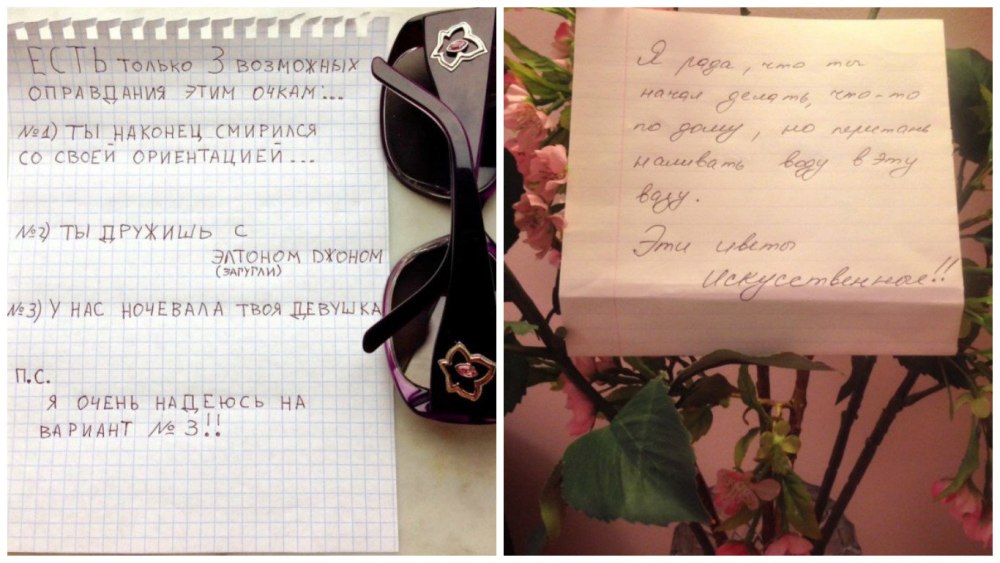 ЕСТЬ только 3 возможных
оправдания этим очкам...
№1) Ты наконец смирился
со своей ориентацией...
№2) Ты дружишь с
Элтоном Джоном
(загугли)
№3) У нас ночевала твоя девушка
П.С.
Я очень надеюсь на
вариант № 3!!
Я рада, что ты
начал делать, что-то
по дому, но перестань
наливать воду в эту
вазу.
Эти цветы
искусственные!!